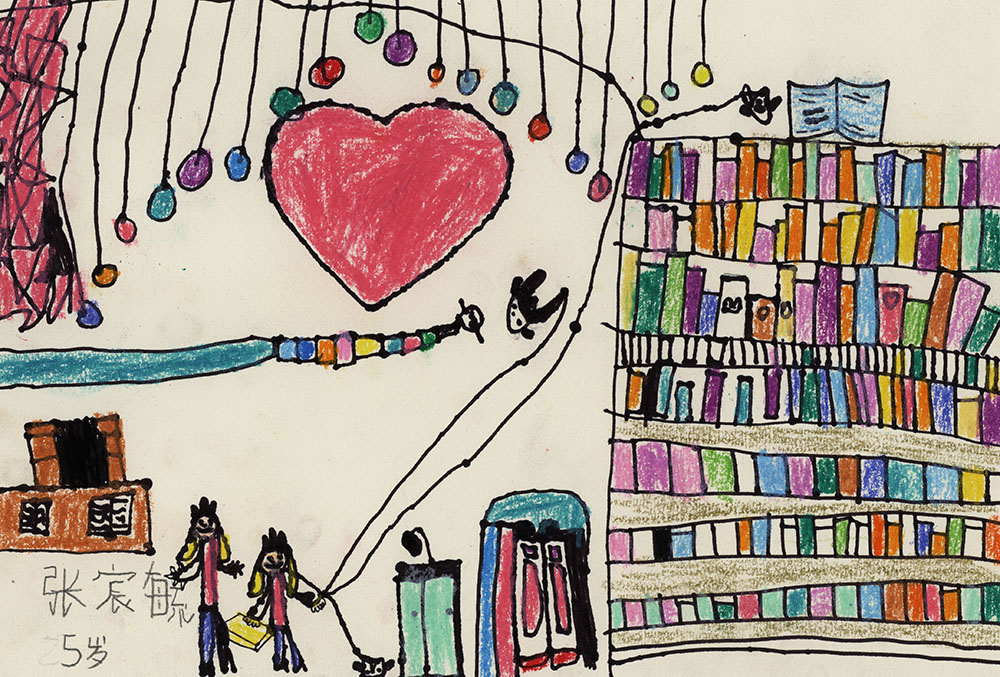 张宸毓
5岁